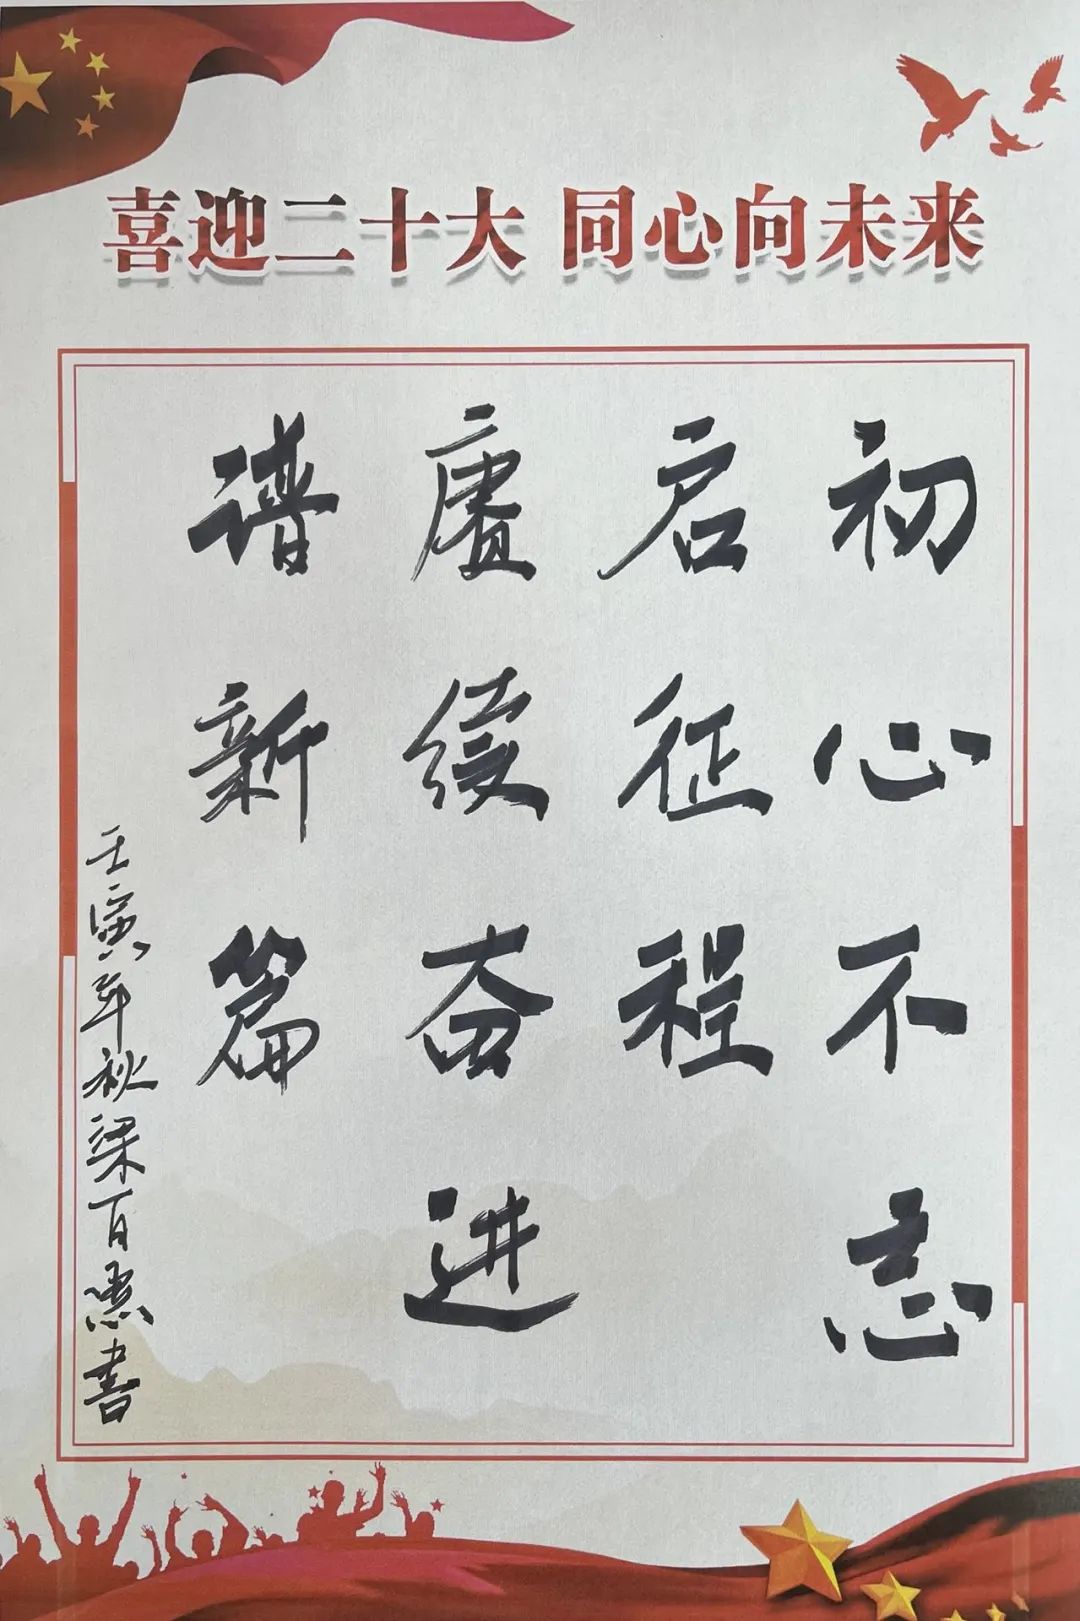 喜迎二十大 同心向未来
初心不忘
启征程
赓续奋进
谱新篇
壬寅年秋梁百惠書